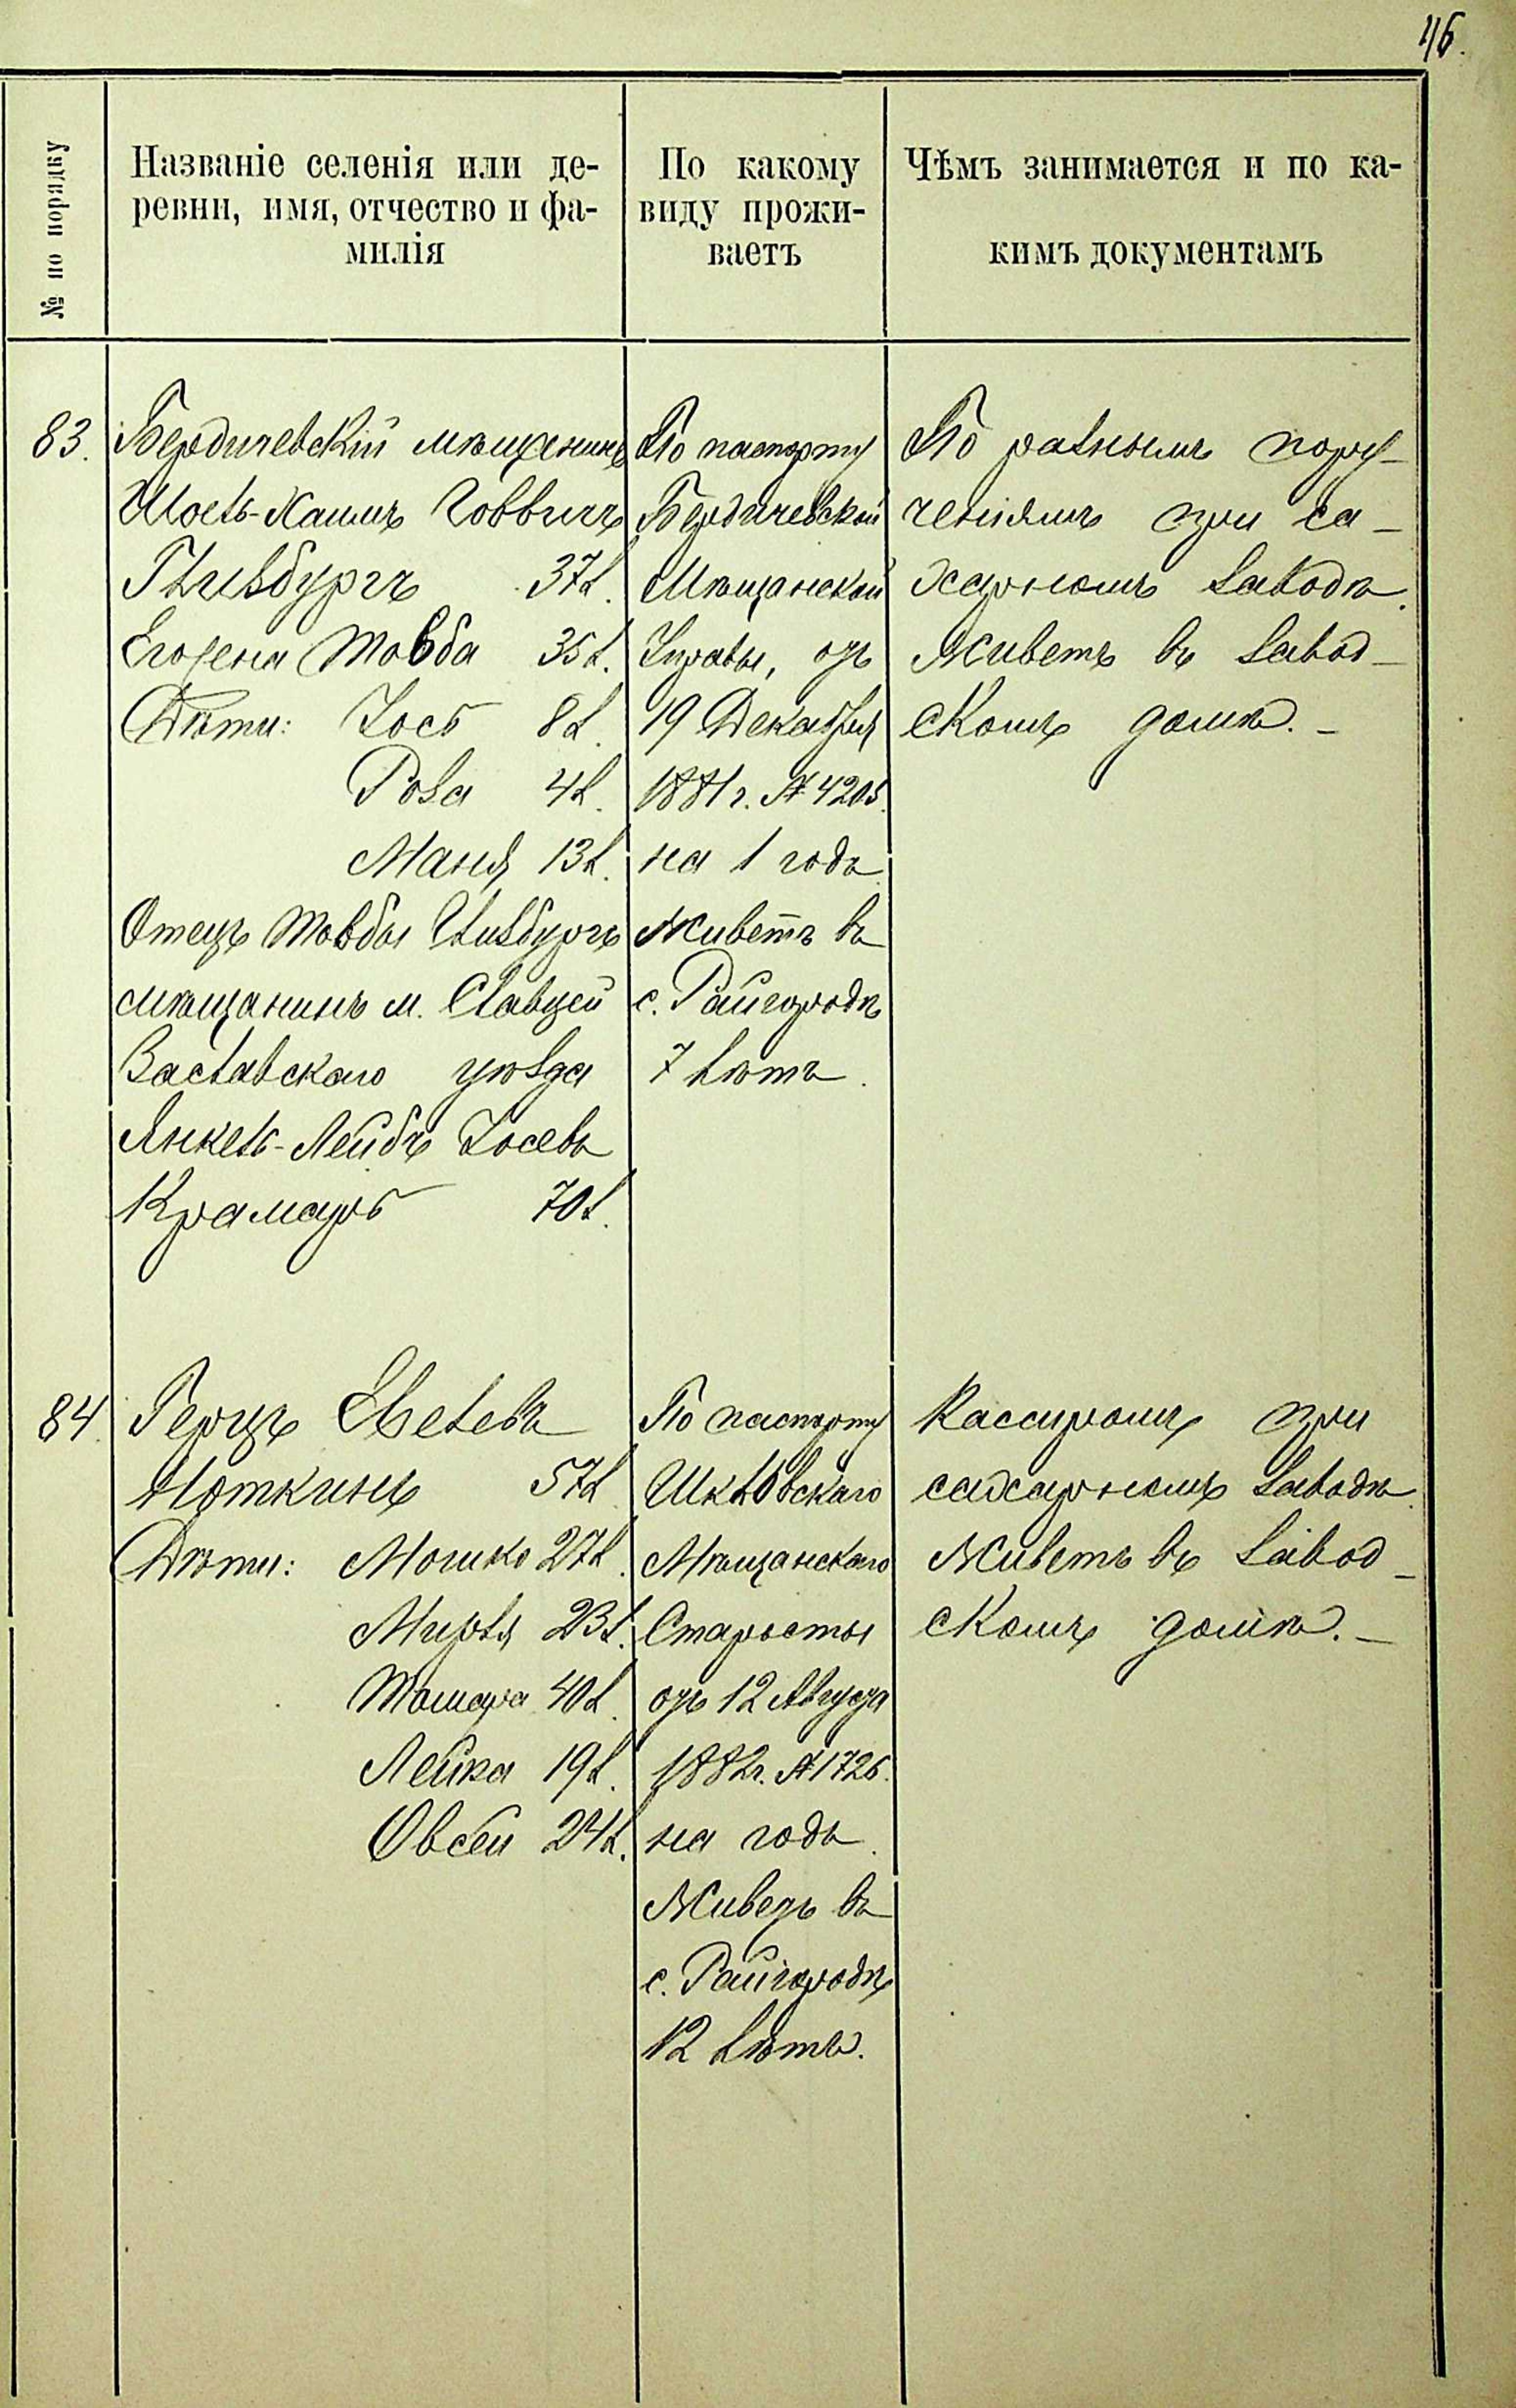 46.
№ по порядку
Названіе селенія или де-
ревни, имя, отчество и фа-
милія
По какому
виду прожи-
ваетъ
Чѣмъ занимается и по ка-
кимъ документамъ
83.
Бердичевскій мѣщанинъ
Хаимъ
Гинзбургъ 37 л.
Его жена Товба 35 л.
Дѣти: Іось 8 л.
Роза 4 л.
Маня 13 л.
Отецъ Товбы Гинзбургъ
мѣщанинъ м.
Заславскаго уѣзда
Янкель-Лейбъ Іосевъ
Крамарь 70 л.
По паспорту
Бердичевской
Мѣщанской
Управы, отъ
19 Декабря
1881 г. № 4205
на 1 годъ.
Живетъ въ
с. Райгородѣ
7 лѣтъ.
По разнымъ пору-
ченіямъ при са-
харномъ заводѣ.
Живетъ въ завод-
скомъ домѣ. –
84.
Герцъ
Ноткинъ 57 л.
Дѣти: Мошко 27 л.
23 л.
Тамара 40 л.
19 л.
Овсей 24 л.
По паспорту
Шкловскаго
Мѣщанскаго
Старосты
отъ 12 Августа
1882 г. № 1726.
на годъ.
Живетъ въ
с. Райгородѣ
12 лѣтъ.
Кассиромъ при
сахарномъ заводѣ.
Живетъ въ завод-
скомъ домѣ. –